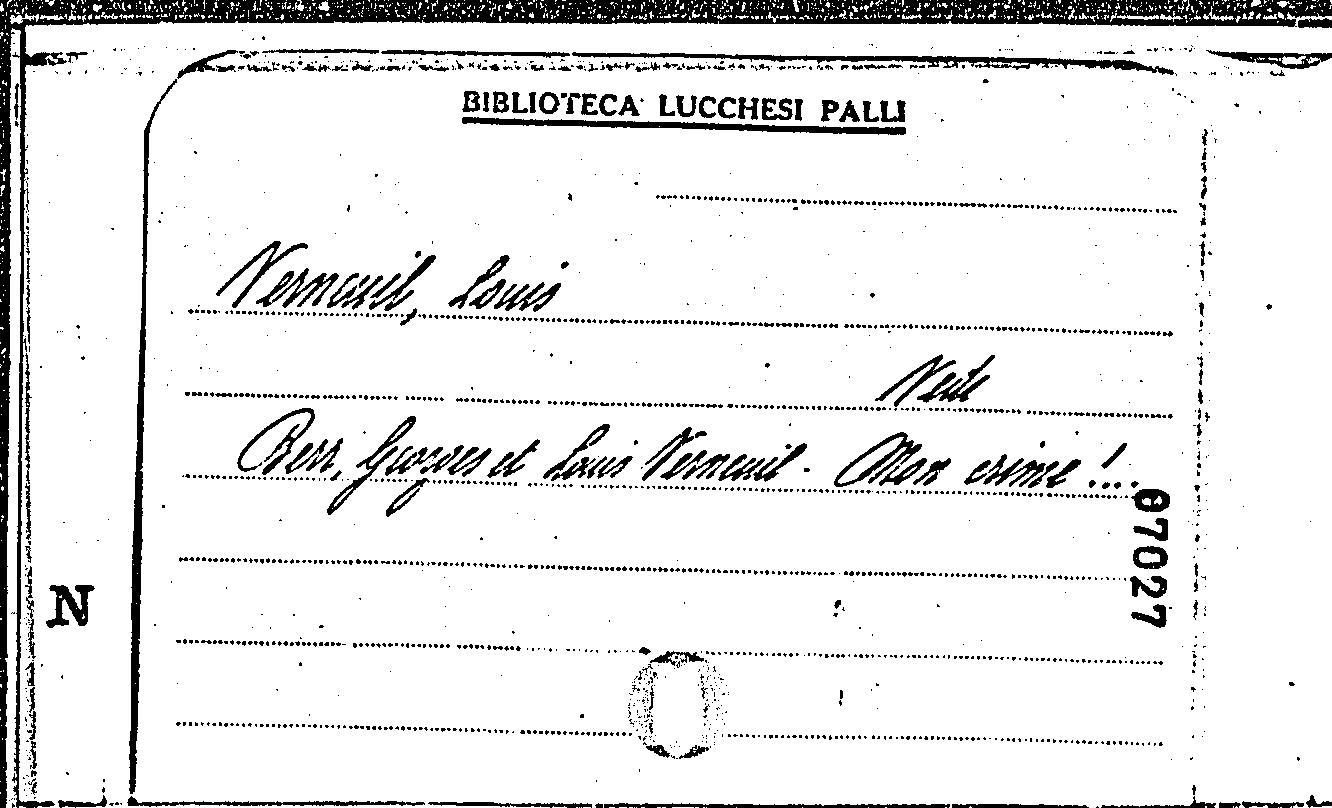 BIBLIOTECA LUCCHESI PALLI
Verneuil, Louis
Vedi
Berr, Georges et Louis Verneuil. Mon crime!...
07027
N